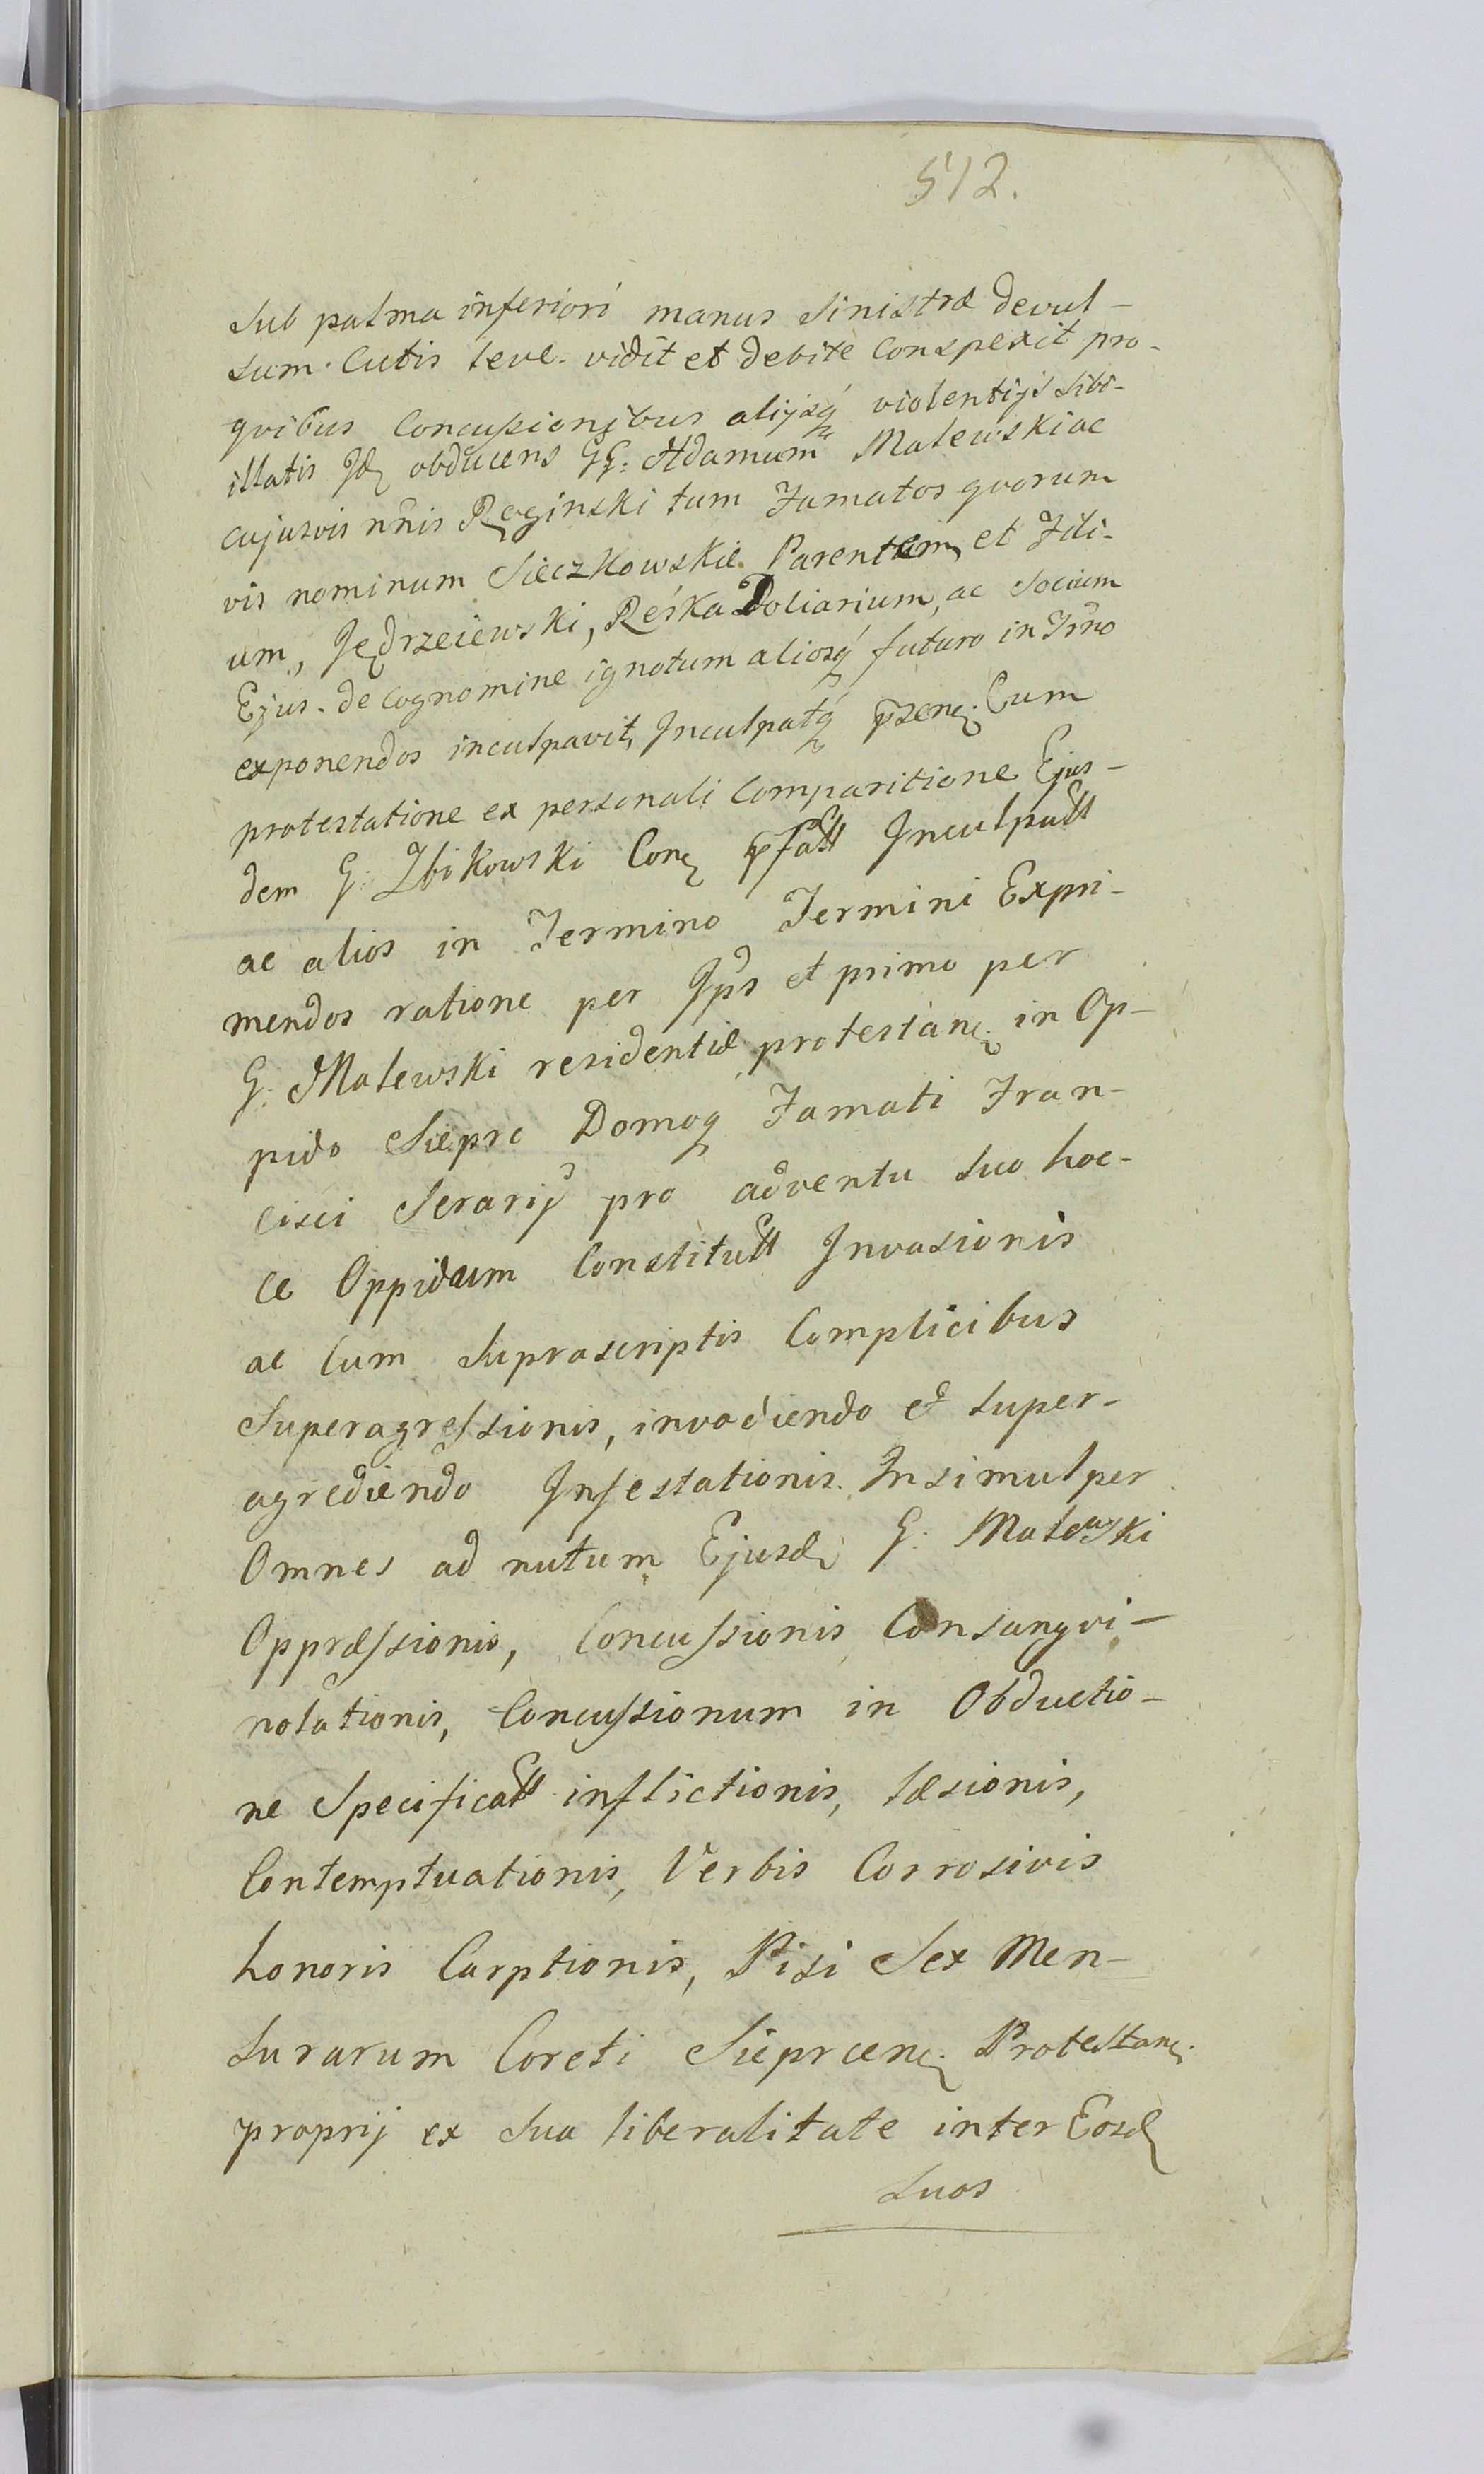 512.
Sub palma inferiori manus Sinistræ devul-
sum. Cutis leve. vidit et debite Conspexit pro-
qvibus Concussionibus alijsq́ violentijs Sibi-
illatis Jdę obducens GG: Adamum Malewski ac
cujusvis nñis Roginski tum Famatos qvorum
vis nominum Sieczkowskie Parentem, et Fili-
um, Jędrzeiewski, Reśka Doliarium, ac Socium
Ejus. de Cognomine ignotum aliosq́ futuro in Trño
exponendos inculpavit, Jnculpatq́ p̃zenę. Cum
protestatione ex personali Comparitione Ejus-
dem G: Zbikowski Conę p̃fatt Jnculpatt
ac alios in Termino Termini Expri-
mendos ratione per Jps et primo per
G: Malewski residentiæ protestanę. in Op-
pido Sieprc Domoq Famati Fran-
cisci Serarij pro adventu suo hoc-
ce Oppidum Constitutt Jnvasionis
ac Cum Suprascriptis Complicibus
Superagressionis, invadiendo et super-
agrediendo Jnfestationis. Jnsimul per
Omnes ad nutum Ejusdę G: Malewski
Oppræssionis, Concussionis Consangvi-
nolationis, Concussionum in Obductio-
ne Specificatt inflictionis, læsionis,
Contemptuationis, Verbis Corrosivis
honoris Carptionis, Pisi Sex Men-
surarum Coreti Sieprcenę. Protestanę.
proprij ex Sua liberalitate inter Eosdę
Suos